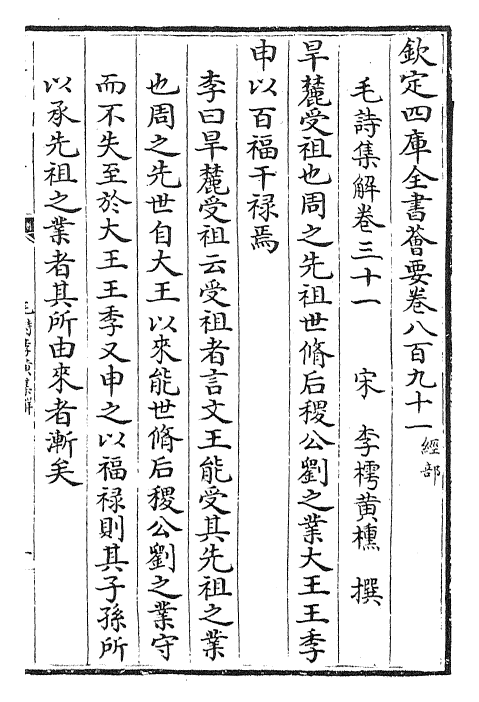 欽定四庫全書薈要卷八百九十一 經部
毛詩集解卷三十一 宋 李樗黃櫄 撰
旱麓受祖也周之先祖世脩后稷公劉之業大王王季
申以百福干禄焉
李曰旱麓受祖云受祖者言文王能受其先祖之業
也周之先世自大王以來能世脩后稷公劉之業守
而不失至於大王王季又申之以福禄則其子孫所
以承先祖之業者其所由來者漸矣